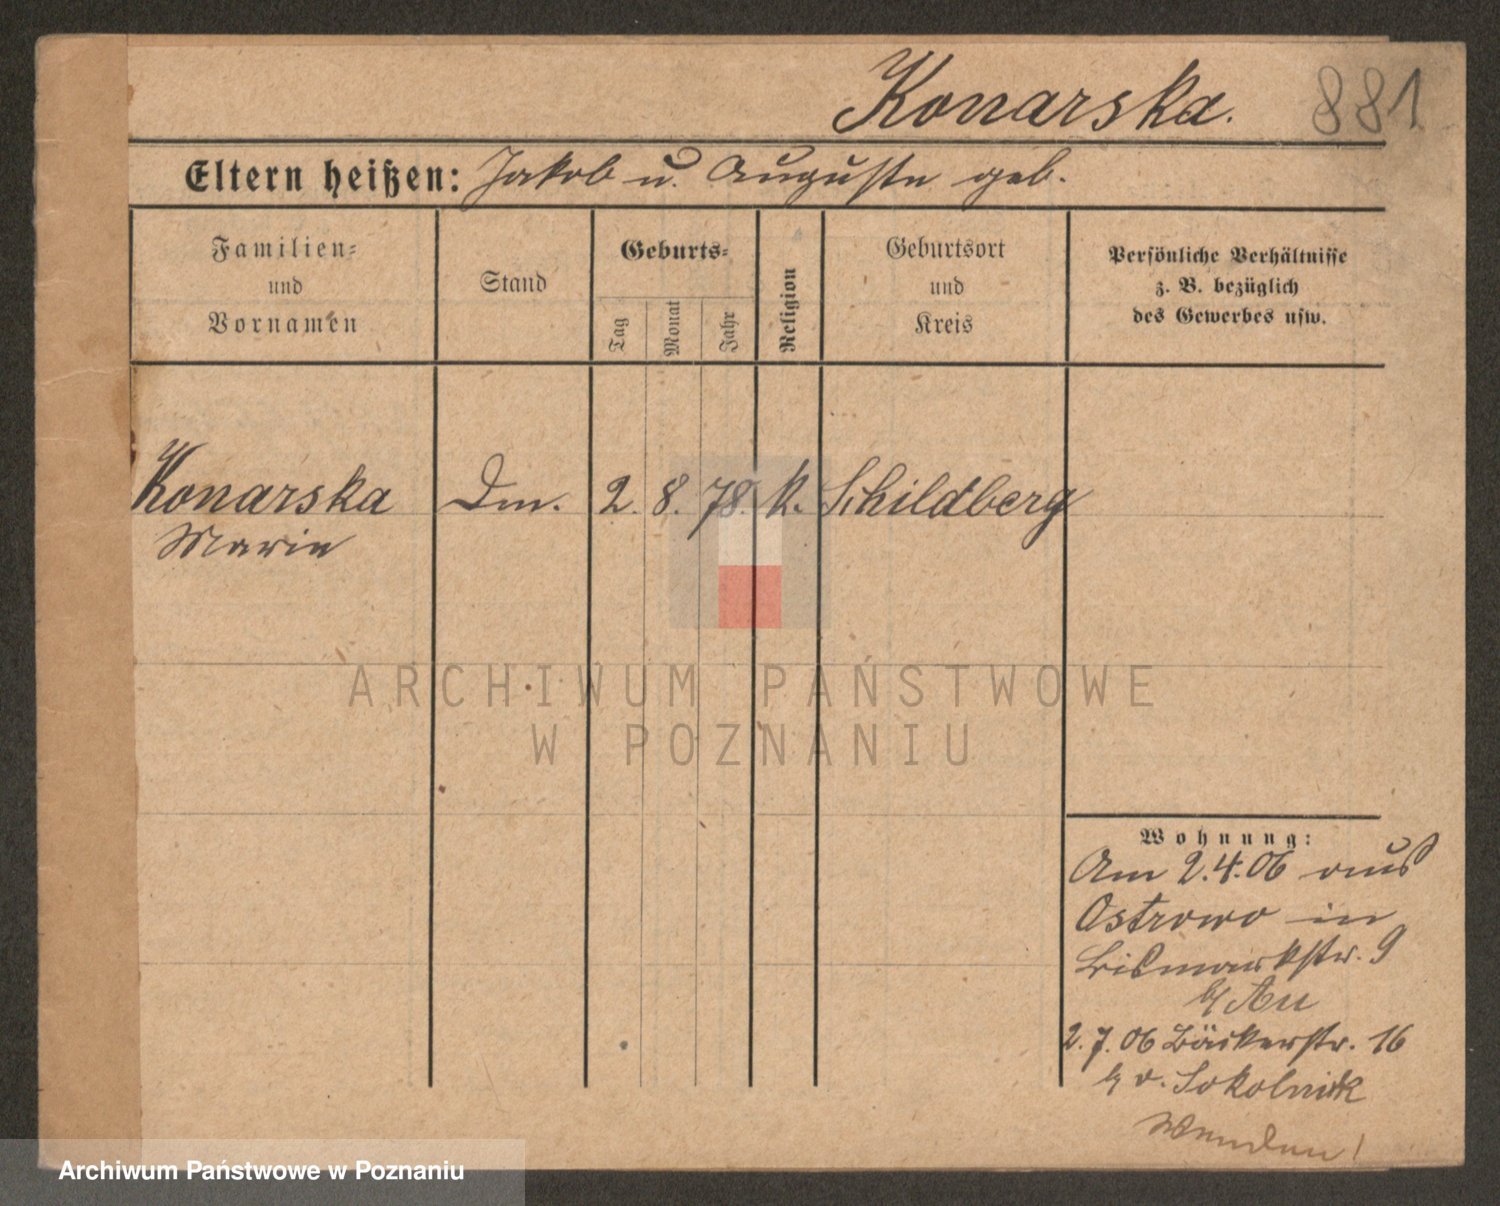 Konarska. 881
Eltern heißen: Jakob u. Auguste geb.
Familien-
und
Vornamen
Stand
Geburts-
Tag
Monat
Jahr
Religion
Geburtsort
und
Kreis
Persönliche Verhältnisse
z. B. bezüglich
des Gewerbes usw.
Konarska Dm. 2. 8. 78. k. Schildberg
Marie
ARCHIWUM PAŃSTWOWE
W POZNANIU
Wohnung:
Am 2.4.06 aus
Ostrowo in
Bismarckstr. 9
b/
2.7.06 Bäckerstr. 16
b/ v. Sokolnick
Wenden!
Archiwum Państwowe w Poznaniu